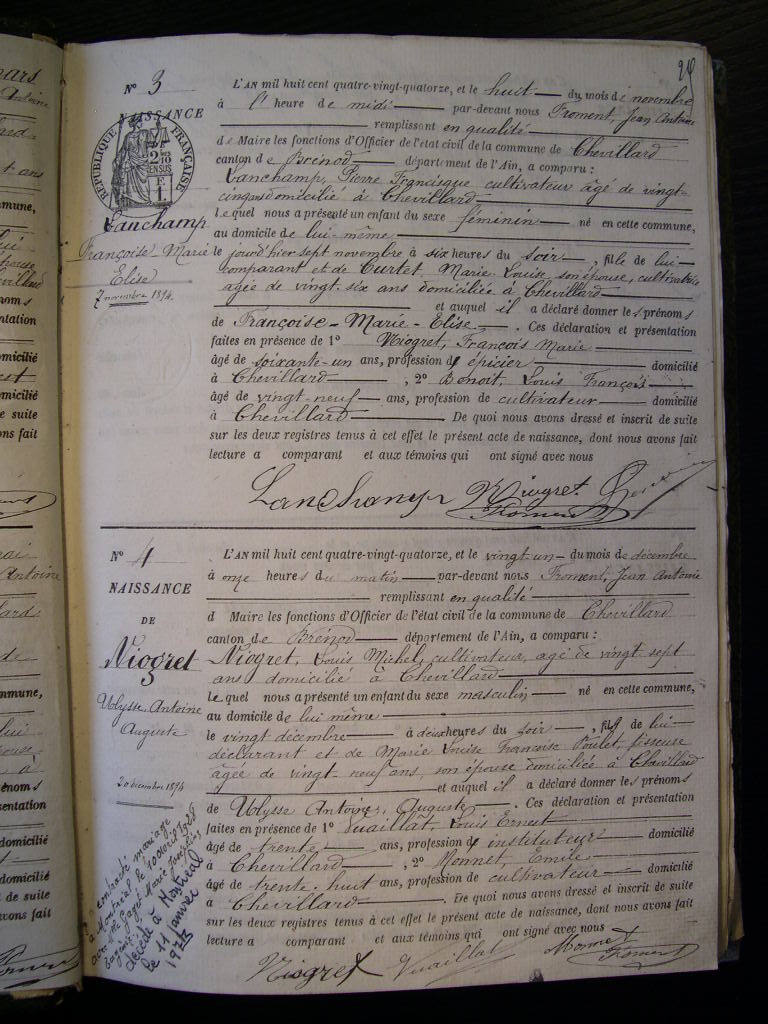 24
N° 3
NAISSANCE
RÉPUBLIQUE FRANÇAISE
Lanchamp
Françoise Marie
Elise
7 novembre 1894.
L'AN mil huit cent quatre-vingt-quatorze, et le huit du mois de novembre
à l'heure de midi par-devant nous Froment, Jean Antoine
remplissant en qualité
de Maire les fonctions d'Officier de l'état civil de la commune de Chevillard
canton de Brénod département de l'Ain, a comparu :
Lanchamp, Pierre Francisque cultivateur âgé de vingt-
cinq ans domicilié à Chevillard
Lequel nous a présenté un enfant du sexe féminin né en cette commune,
au domicile de lui-même
le jourd'hier sept novembre à six heures du soir, fille de lui-
comparant et de Curtet, Marie Louise, son épouse, cultivatrice
agée de vingt-six ans domiciliée à Chevillard
et auquel il a déclaré donner les prénoms
de Françoise-Marie-Elise. Ces déclaration et présentation
faites en présence de 1° Niogret, François Marie
âgé de soixante-un ans, profession d'épicier domicilié
à Chevillard, 2° Benoit, Louis François
âgé de vingt-neuf ans, profession de cultivateur domicilié
à Chevillard. De quoi nous avons dressé et inscrit de suite
sur les deux registres tenus à cet effet le présent acte de naissance, dont nous avons fait
lecture a comparant et aux témoins qui ont signé avec nous
Lanchamp Niogret
Froment
N° 4
NAISSANCE
DE
Niogret
Ulysse Antoine
Auguste
20 décembre 1894
a contracté mariage
à Montréal le 10 avril 1928
avec
décédé à Montréal
le 11 janvier
L'AN mil huit cent quatre-vingt-quatorze, et le vingt-un du mois de décembre
à onze heures du matin par-devant nous Froment, Jean Antoine
remplissant en qualité
d Maire les fonctions d'Officier de l'état civil de la commune de Chevillard
canton de Brénod département de l'Ain, a comparu :
Niogret, Louis Michel, cultivateur, agé de vingt sept
ans domicilié à Chevillard
Lequel nous a présenté un enfant du sexe masculin né en cette commune,
au domicile de lui même
le vingt décembre à deux heures du soir, fils de lui-
déclarant et de Marie Louise Françoise Poulet, tisseuse
âgée de vingt-neuf ans, son épouse domiciliée à Chevillard
et auquel il a déclaré donner les prénoms
de Ulysse Antoine, Auguste. Ces déclaration et présentation
faites en présence de 1° Vuaillat, Louis Ernest
âgé de trente ans, profession d'instituteur domicilié
à Chevillard, 2° Monnet, Emile
âgé de trente-huit ans, profession de cultivateur domicilié
à Chevillard. De quoi nous avons dressé et inscrit de suite
sur les deux registres tenus à cet effet le présent acte de naissance, dont nous avons fait
lecture a comparant et aux témoins qui ont signé avec nous
Niogret Vuaillat Monnet
Froment